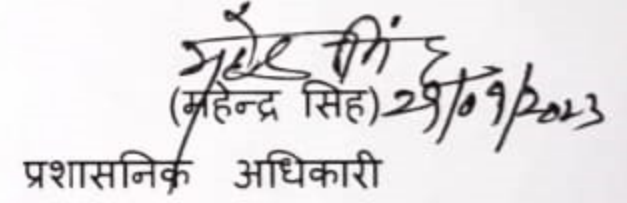 महेन्द्र सिंह
(महेन्द्र सिंह) 29/09/2023
प्रशासनिक अधिकारी